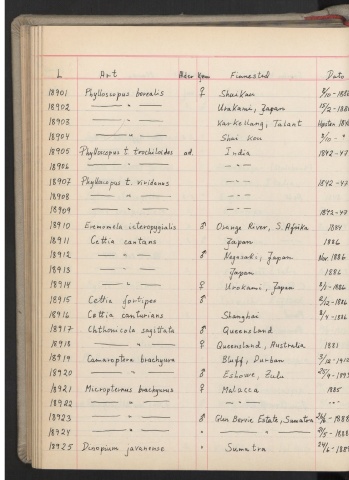 L Art Alder Kjønn Finnested Dato
18901 Phylloscopus borealis ♀ Shaikau
18902 — " — Urakami, Japan 15/2-1886
18903 — " — Karkellang, Talant Høsten
18904 — " — Shai kou
18905 Phylloscopus t. trochiloides ad. India 1842-47
18906 — " — — " —
18907 Phylloscopus t. viridanus — " — 1842-47
18908 — " — — " —
18909 — " — — " — 1842-47
18910 Eremomela icteropygialis ♂ Orange River, S. Afrika 1884
18911 Cettia cantans Japan 1886
18912 — " — ♂ Nagasaki, Japan Nov 1886
18913 — " — Japan 1886
18914 — " — ♀ Urakami, Japan
18915 Cettia fortipes ♂
18916 Cettia canturians Shanghai
18917 Chthonicola sagittata ♂ Queensland
18918 — " — ♀ Queensland, Australia 1881
18919 Camaroptera brachyura Bluff, Durban
18920 — " — ♂ Eshowe, Zulu
18921 Micropternus brachyurus ♀ Malacca 1885
18922 — " — — " —
18923 — " — ♂ Glen Bervie Estate, Sumatra
18924 — " — " — " —
18925 Dinopium javanense " Sumatra